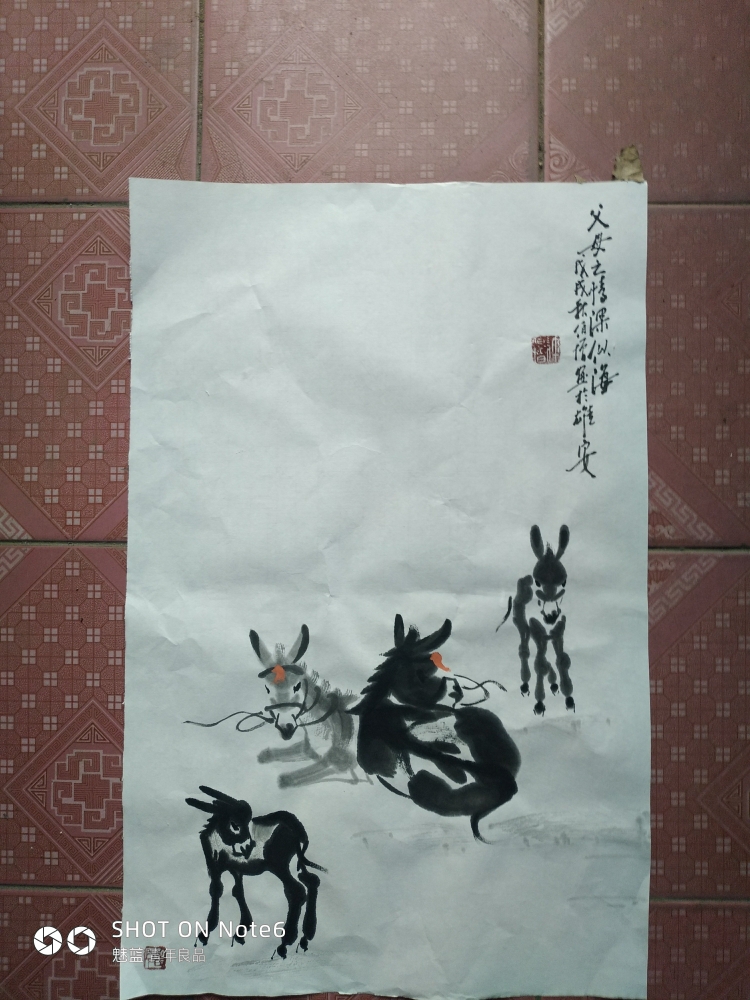 父母之情深似海
戊戌秋伯僧画於雄安
SHOT ON Note6
魅蓝青年良品